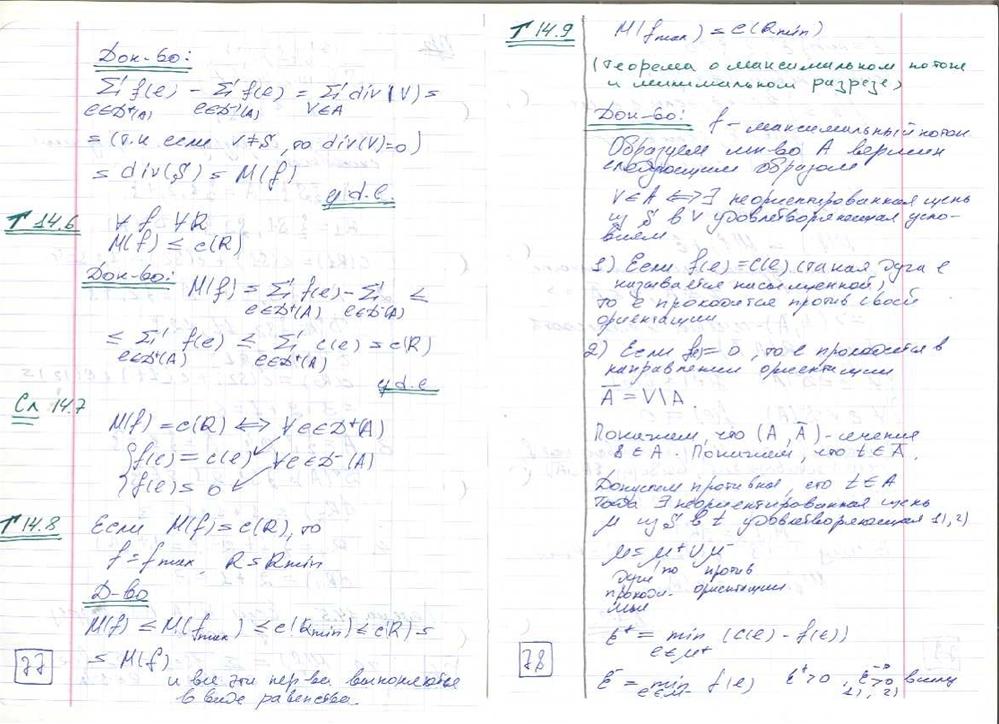 Док-во:
Σ f(e) - Σ f(e) = Σ div(V) =
e∈D⁺(A) e∈D⁻(A) V∈A
= (т.к если V≠S, то div(V)=0)
= div(S) = M(f)
ч.д.е.
Т 14.6 ∀ f ∀R
M(f) ≤ c(R)
Док-во: M(f) = Σ f(e) - Σ ≤
e∈D⁺(A) e∈D⁻(A)
≤ Σ f(e) ≤ Σ c(e) = c(R)
e∈D⁺(A) e∈D⁺(A)
ч.д.е
Сл 14.7
M(f) = c(R) ⟺ ∀e∈D⁺(A)
{f(e) = c(e) ∀e∈D⁻(A)
{f(e) = 0
Т 14.8 Если M(f) = c(R), то
f = f max, R = R min
Д-во
M(f) ≤ M(f max) ≤ c(R min) ≤ c(R) =
= M(f)
и все эти нер-ва выполняются
в виде равенства.
77
Т 14.9 M(f max) = c(R min)
(теорема о максимальном потоке
и минимальном разрезе)
Док-во: f - максимальный поток
Образуем мн-во A вершин
следующим образом
V∈A ⟺ ∃ неориентированная цепь
из S в V удовлетворяющая усло-
виям
1) Если f(e) = c(e) (такая дуга e
называется насыщенной)
то e проходится против своей
ориентации
2) Если f(e) = 0, то e проходится в
направлении ориентации
Ā = V\A
Покажем, что (A, Ā) - сечение
S∈A. Покажем, что t∈Ā.
Допустим противное, что t∈A
Тогда ∃ неориентированная цепь
μ из S в t удовлетворяющая 1), 2)
μ = μ⁺ ∪ μ⁻
дуги по против
проходи- ориентации
мые
ε⁺ = min (c(e) - f(e))
e∈μ⁺
ε⁻ = min f(e) ε⁺>0, ε⁻>0 ввиду
e∈μ⁻ 1), 2)
78